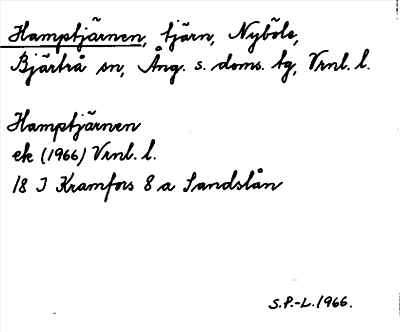 Hamptjärnen, tjärn, Nyböle,
Bjärtrå sn, Ång. s. doms. tg, Vrnl. l.
Hamptjärnen
ek (1966) Vrnl. l.
18 I Kramfors 8 a Sandslån
S.P.-L. 1966.